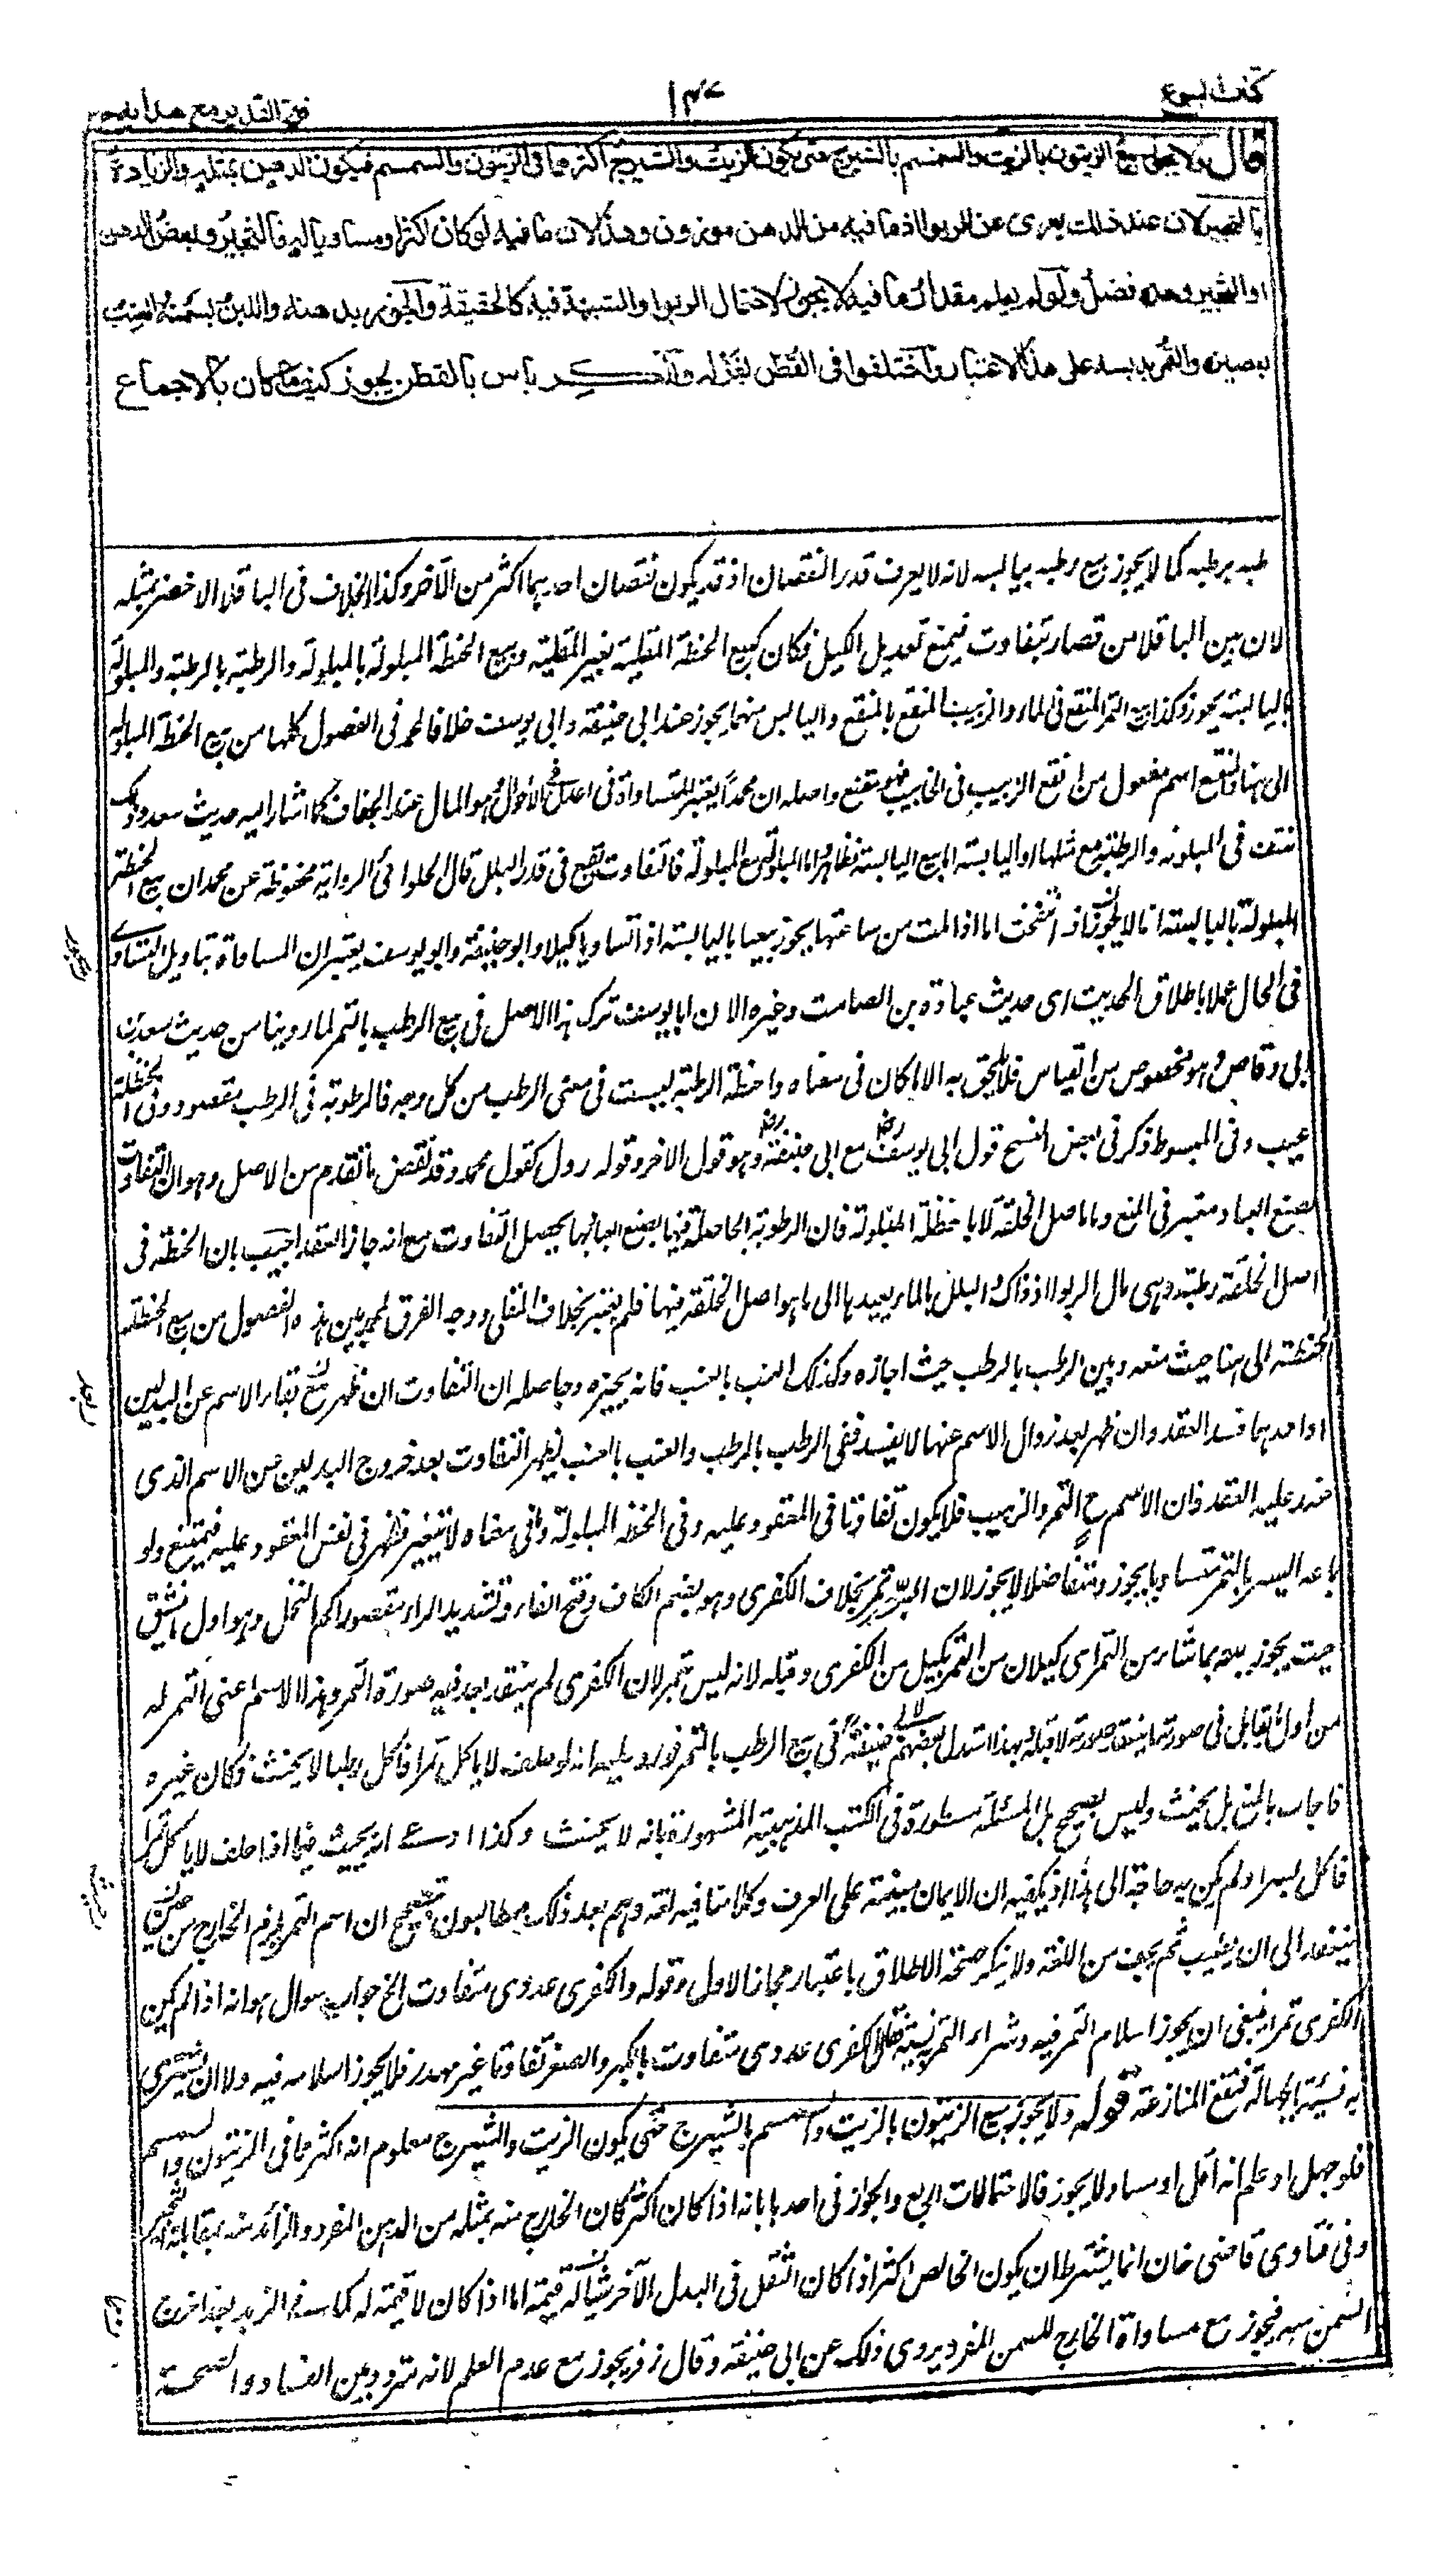 كتاب البيوع
١٤٧
فتح القدير مع هدايه ج ٣
قال ولا يجوز بيع الزيتون بالزيت والسمسم بالشيرج حتى يكون الزيت والشيرج اكثر مما فى الزيتون والسمسم فيكون الدهن بمثله والزيادة
بالثجير لان عند ذلك يعرى عن الربوا اذ ما فيه من الدهن موزون وهذا لان ما فيه لو كان اكثر او مساويا له فالثجير وبعض الدهن
او الثجير وحده فضل ولو لم يعلم مقدار ما فيه لا يجوز لاحتمال الربوا والشبهة فيه كالحقيقة والجوز بدهنه واللبن بسمنه والعنب
بعصيره والتمر بدبسه على هذا الاعتبار واختلفوا فى القطن بغزله والكرباس بالقطن يجوز كيف ما كان بالاجماع
طبه برطبه كما لا يجوز بيع رطبه بيابسه لانه لا يعرف قدر النقصان اذ قد يكون نقصان احدهما اكثر من الآخر وكذا الخلاف فى الباقلا الاخضر بمثله
لان بين الباقلا من قصار تتفاوت فيمنع تعديل الكيل فكان كبيع الحنطة المقلية بغير المقلية وبيع الحنطة المبلولة بالمبلولة والرطبة بالرطبة والمبلولة
باليابسة يجوز وكذا بيع التمر المنقع فى الماء والزبيب المنقع بالمنقع واليابس منهما يجوز عند ابى حنيفة وابى يوسف خلافا لمحمد فى الفصول كلها من بيع الحنطة المبلولة
الى هنا والمنقع اسم مفعول من انقع الزبيب فى الخابية فهو منقع واصله ان محمدا يعتبر المساواة فى اعدل الاحوال وهو المآل عند الجفاف كما اشار اليه حديث سعد وذلك
منتف فى المبلولة والرطبة مع مثلها او اليابسة اما بيع اليابسة فظاهر واما المبلولة مع المبلولة فالتفاوت يقع فى قدر البلل قال الحلوائى الرواية محفوظة عن محمد ان بيع الحنطة
المبلولة باليابسة انما لا يجوز اذا انتفخت اما اذا بلت من ساعتها يجوز بيعها باليابسة اذا تساويا كيلا وابو حنيفة وابو يوسف يعتبران المساواة بتاويل التساوى
فى الحال عملا باطلاق الحديث اى حديث عبادة بن الصامت وغيره الا ان ابا يوسف ترك هذا الاصل فى بيع الرطب بالتمر لما روينا من حديث سعد بن
ابى وقاص وهو مخصوص من القياس فلا يلحق به الا ما كان فى معناه والحنطة الرطبة ليست فى معنى الرطب من كل وجه فالرطوبة فى الرطب مقصود وفى الحنطة
عيب وفى المبسوط ذكر فى بعض النسخ قول ابى يوسف مع ابى حنيفة وهو قول الاخر وقوله الاول كقول محمد وقد نقض ما تقدم من الاصل وهو ان التفاوت
بصنع العباد معتبر فى المنع وما باصل الخلقة لا بالحنطة المبلولة فان الرطوبة الحاصلة فيها بصنع العباد بها يحصل التفاوت مع انه جاز العقد اجيب بان الحنطة فى
اصل الخلقة رطبة وهى مال الربوا اذ ذاك والبلل بالماء يعيدها الى ما هو اصل الخلقة فيها فلم يعتبر بخلاف المقلى ووجه الفرق لمحمد بين هذه الفصول من بيع الحنطة
بالحنطة الى هنا حيث منعه وبين الرطب بالرطب حيث اجازه وكذلك العنب بالعنب فانه يجيزه وحاصله ان التفاوت ان ظهر مع بقاء الاسم عن البدلين
او احدهما فسد العقد وان ظهر بعد زوال الاسم عنهما لا يفسد ففى الرطب بالرطب والعنب بالعنب يظهر التفاوت بعد خروج البدلين عن الاسم الذى
عقد عليه العقد فان الاسم ح التمر والزبيب فلا يكون تفاوتا فى المعقود عليه وفى الحنطة المبلولة وما فى معناه لا يتغير فظهر فى نفس المعقود عليه فيمتنع ولو
باعه البسر بالتمر متساويا يجوز ومتفاضلا لا يجوز لان البسر تمر بخلاف الكفرى وهو بضم الكاف وفتح الفاء وتشديد الراء مقصورا كم النخل وهو اول ما ينشق
حيث يجوز بيعه بما شاء من التمر اى كيلان من التمر بكيل من الكفرى وقبله لانه ليس بتمر لان الكفرى لم ينعقد بعد فيه صورة التمر وهذا الاسم اعنى التمر له
من اول ما يقابل فى صورته لا ينعقد صورته لا قبله وبهذا استدل بعضهم لابى حنيفة فى بيع الرطب بالتمر فورد عليه انه لو حلف لا ياكل تمرا فاكل رطبا لا يحنث فكان غيره
فاجاب بالمنع بل يحنث وليس بصحيح بل المسئلة مسطورة فى الكتب المذهبية المشهورة بانه لا يحنث وكذا ادعى انه يحنث فيما اذا حلف لا ياكل تمرا
فاكل بسرا ولم يكن به حاجة الى هذا اذ يكفيه ان الايمان مبنية على العرف وكلامنا فيه لغة وهم بعد ذلك يطالبون بتصحيح ان اسم التمر لزم الخارج من حين
ينعقد الى ان يطيب ثم يجف من اللغة ولا ينكر صحة الاطلاق باعتبار مجاز الاول وقوله والكفرى عددى متفاوت الخ جواب سوال هو انه اذا لم يكن
الكفرى تمرا فينبغى ان يجوز اسلام التمر فيه وشراء التمر نسيئة فقال الكفرى عددى متفاوت بالكبر والصغر تفاوتا غير مهدر فلا يجوز اسلامه فيه ولا ان يشترى
به نسيئة لجهالة فتقع المنازعة قوله ولا يجوز بيع الزيتون بالزيت والسمسم بالشيرج حتى يكون الزيت والشيرج معلوم انه اكثر مما فى الزيتون والسمسم
فلو جهل او علم انه اقل او مساو لا يجوز فالاحتمالات اربع والجواز فى احدها بانه اذا كان اكثر كان الخارج منه بمثله من الدهن المفرد والزائد منه بمقابلة الثجير
وفى فتاوى قاضى خان انما يشترط ان يكون الخالص اكثر اذا كان الثفل فى البدل الآخر شيأ له قيمة اما اذا كان لا قيمة له كما سئل الزبد بعد اخراج
السمن منه فيجوز مع مساواة الخارج للسمن المفرد يروى ذلك عن ابى حنيفة وقال زفر يجوز مع عدم العلم لانه متردد بين الفساد والصحة